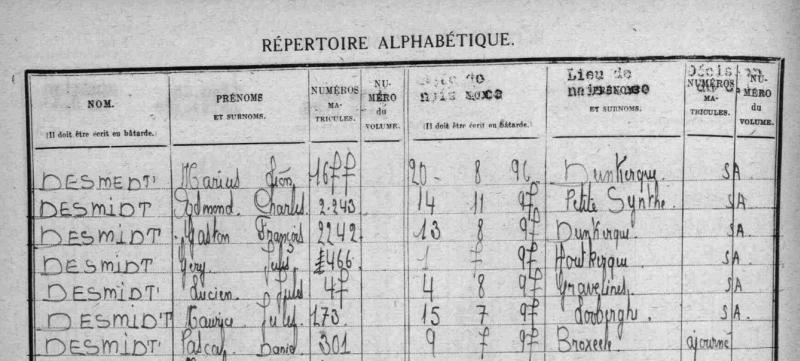 RÉPERTOIRE ALPHABÉTIQUE.
NOM. (Il doit être écrit en bâtarde.) PRÉNOMS ET SURNOMS. NUMÉROS MA-TRICULES. NU-MÉRO du VOLUME. Date de naissance (Il doit être écrit en bâtarde.) Lieu de naissance ET SURNOMS. Décision du NUMÉROS MA-TRICULES. NU-MÉRO du VOLUME.
DESMEDT Marius Léon 1677 20 - 8 96 Dunkerque SA
DESMIDT Edmond Charles 2.243 14 11 97 Petite Synthe SA
DESMIDT Gaston François 2242 13 8 97 Dunkerque SA
DESMIDT Géry Jules 466 1 7 97 Houtkerque SA
DESMIDT Lucien Jules 47 4 8 97 Gravelines SA
DESMIDT Maurice Jules 173 15 7 97 SA
DESMIDT Pascal Daniel 301 9 7 97 Broxeele ajourné